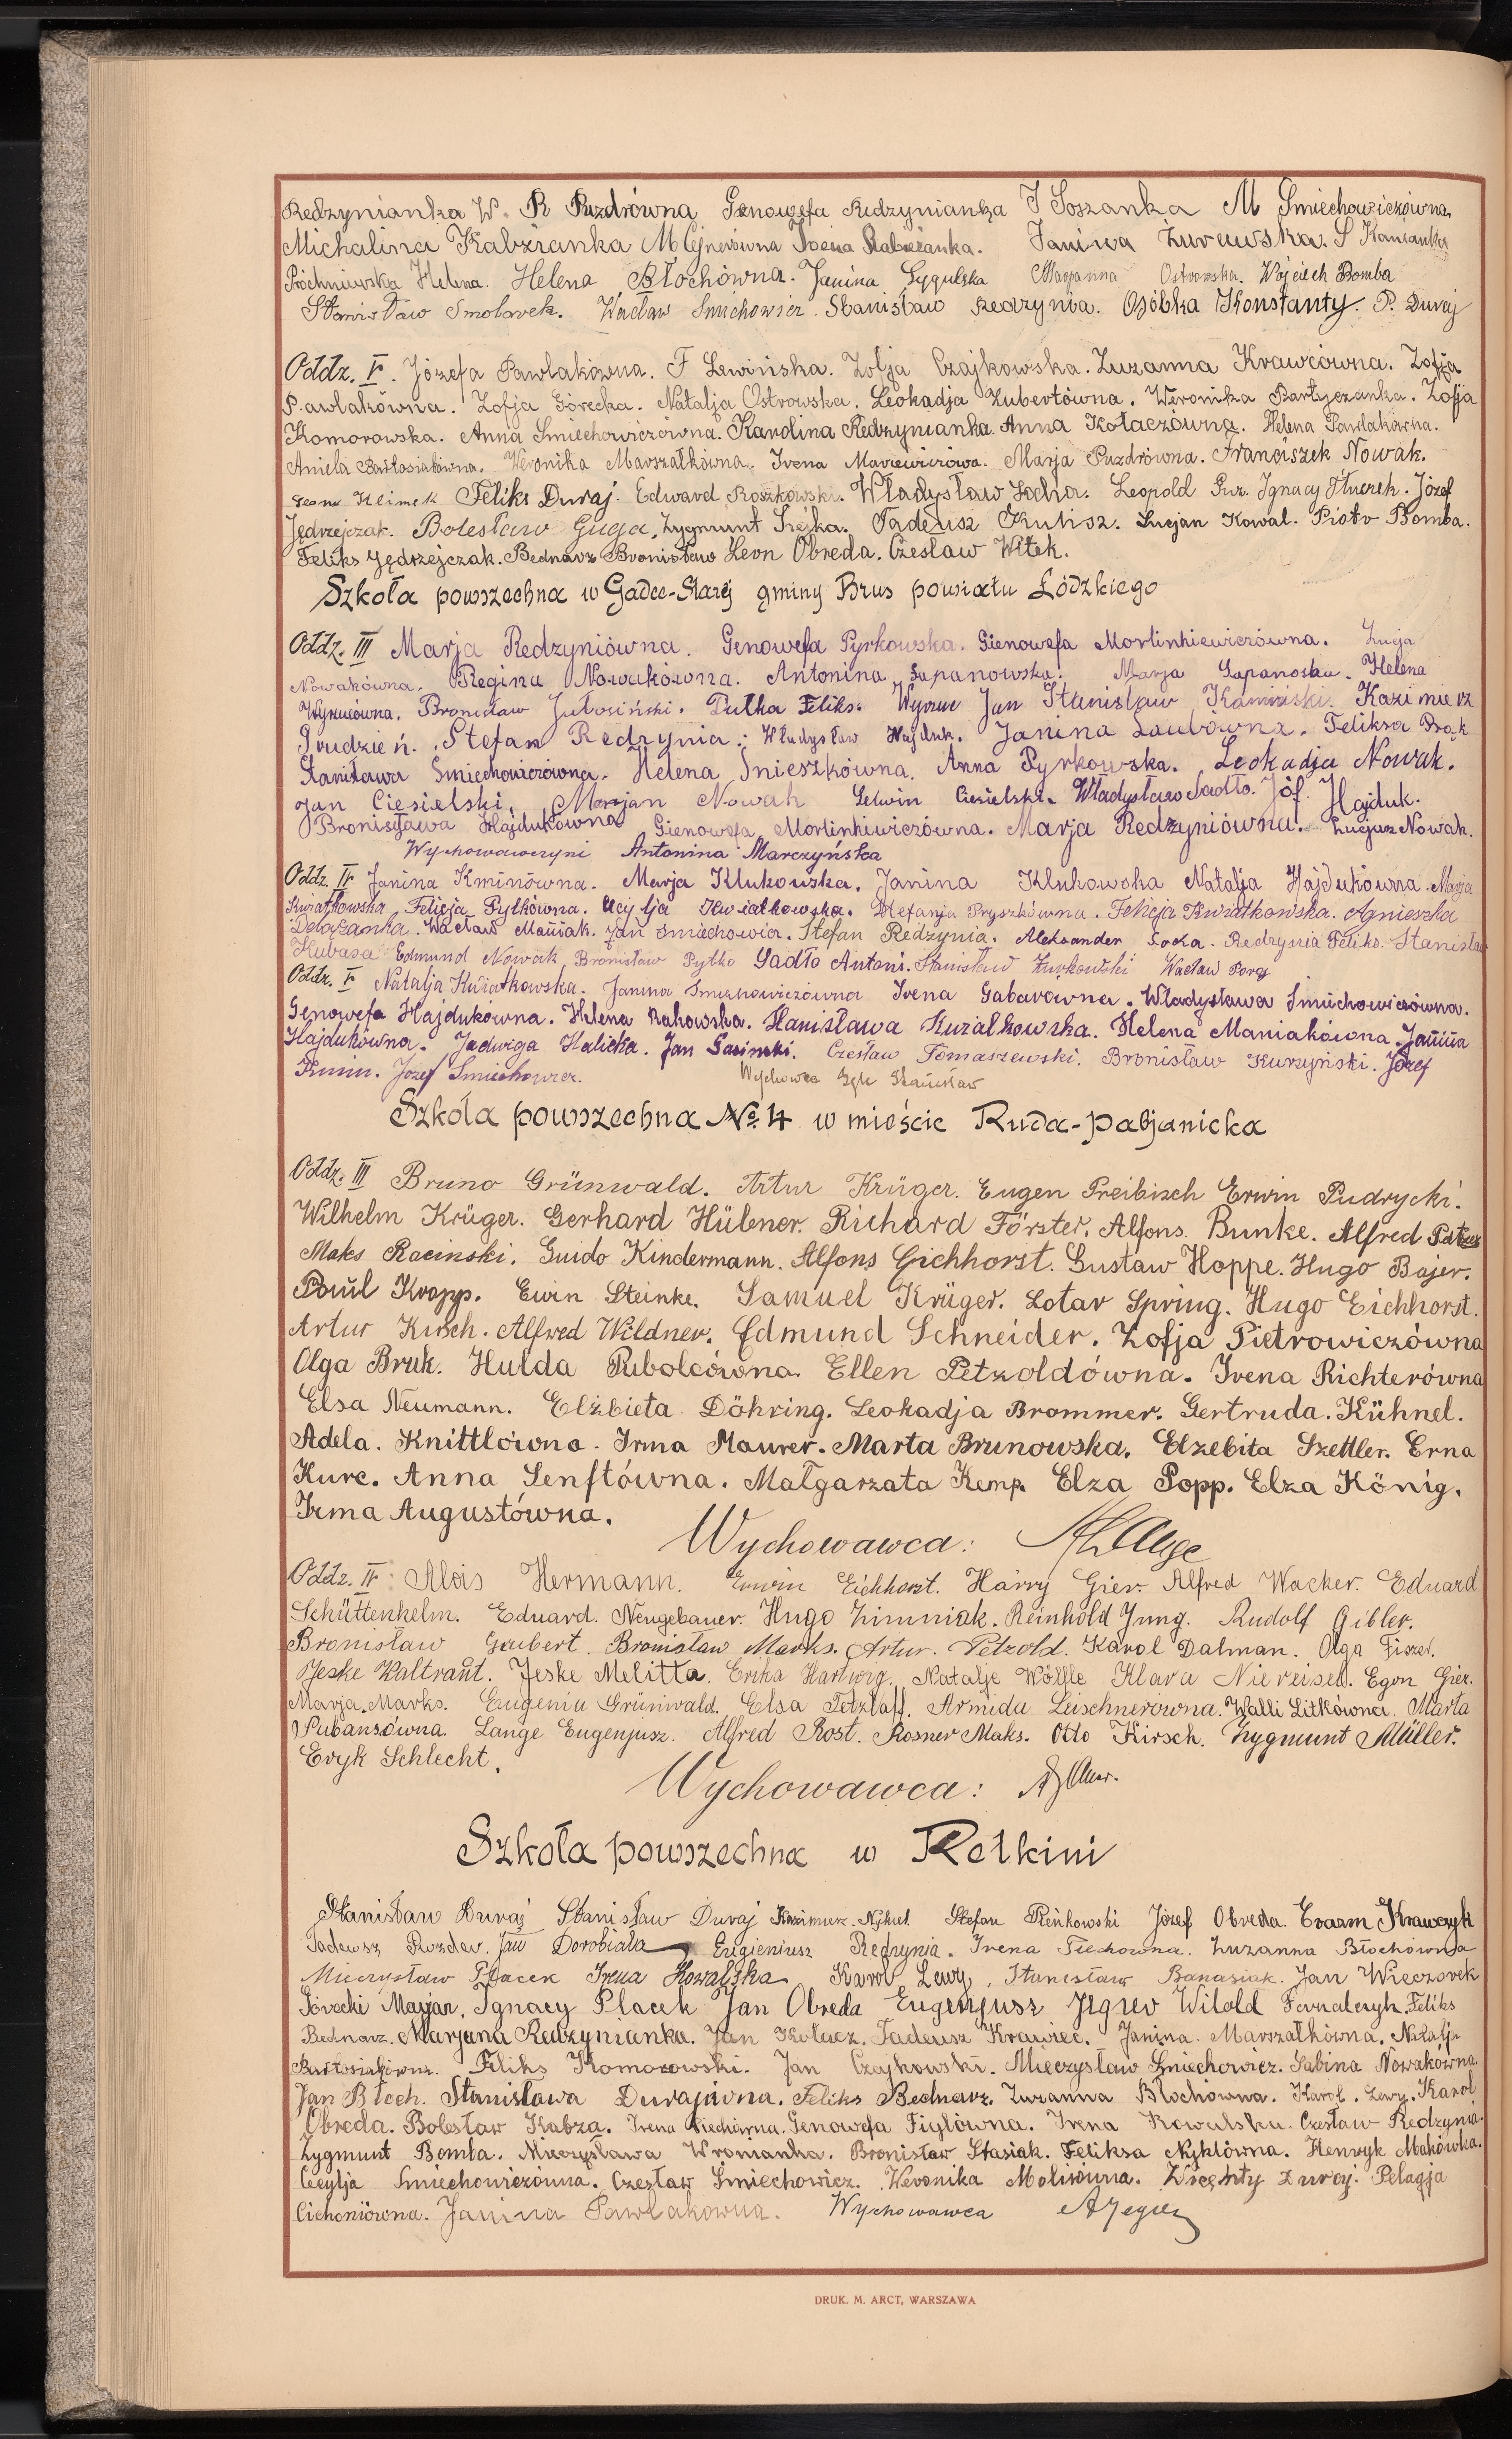 Redzynianka W. R Puzdrówna Genowefa Redzynianka J Soszanka M Smiechowiczówna.
Michalina Kabzianka M Ejnerówna Irena Rabieżanka. Janina Żurawska. S Kamianka
Próchniewska Helena. Helena Błochówna. Janina Cygulska Marjanna Ostrowska. Wojciech Bomba
Stanisław Smolarek. Wacław Smichowicz. Stanisław Redzynia. Osóbka Konstanty. P. Duraj
Oddz. V. Józefa Pawlakówna. F Lewińska. Zofja Czajkowska. Zuzanna Krawcówna. Zofja
Pawlakówna. Zofja Górecka. Natalja Ostrowska. Leokadja Kubertówna. Weronika Bartyczanka. Zofja
Komorowska. Anna Smiechowiczówna. Karolina Redzynianka. Anna Kołaczówna. Helena Pawlakówna.
Aniela Bartosiakówna. Weronika Marszałkówna. Irena Marciewiczówa. Marja Puzdrówna. Franciszek Nowak.
Leon Klimek Feliks Duraj. Edward Roszkowski. Władysław Socha. Leopold Guz. Ignacy Stuczek. Józef
Jędrzejczak. Bolesław Guga. Zygmunt Srejka. Tadeusz Kulisz. Lucjan Kowal. Piotr Bomba.
Feliks Jędrzejczak. Bednarz Bronisław Leon Obreda. Czesław Witek.
Szkoła powszechna w Gadce-Starej gminy Brus powiatu Łódzkiego
Oddz. III Marja Redzyniówna. Genowefa Pyrkowska. Gienowefa Mortinkiewiczówna. Łucja
Nowakówna. Regina Nowakówna. Antonina Sapanowska. Marja Sapanoska. Helena
Wyrucówna. Bronisław Jułosiński. Pułka Feliks. Wyrzuc Jan Stanisław Kamiński. Kazimierz
Grudzień. Stefan Redzynia. Władysław Hajduk. Janina Laubówna. Feliksa Bąk
Stanisława Smiechowiczówna. Helena Snieszkówna. Anna Pyrkowska. Leokadja Nowak.
Jan Ciesielski. Marjan Nowak Gelwin Ciesielski. Władysław Sadło. Jóf. Hajduk.
Bronisława Hajdukówna Gienowefa Mortinkiwiczówna. Marja Redzyniówna. Łucjan Nowak.
Wychowawczyni Antonina Marczyńska
Oddz. IV Janina Kminówna. Marja Klukowska. Janina Klukowska Natalja Hajdukówna. Marja
Kwiatkowska Felicja Pytkówna. Ucylja Kwiatkowska. Stefanja Pryszkówna. Felicja Kwiatkowska. Agnieszka
Delążanka. Wacław Maniak. Jan Smiechowicz. Stefan Redzynia. Aleksander Socka. Redzynia Feliks. Stanisław
Kubasa Edmund Nowak Bronisław Pytko Sadło Antoni. Stanisław Żurkowski Wacław Poros
Oddz. V Natalja Kwiatkowska. Janina Smichowiczówna Irena Gabarowna. Władysława Smiechowiczówna.
Genowefa Hajdukówna. Helena Rakowska. Stanisława Kwiatkowska. Helena Maniakówna. Janina
Hajdukówna. Jadwiga Halicka. Jan Gasinski. Czesław Tomaszewski. Bronisław Kurzyński. Józef
Kmin. Józef Smiechowicz. Wychowca Stanisław
Szkoła powszechna No. 4 w mieście Ruda-Pabjanicka
Oddz. III Bruno Grünwald. Artur Krüger. Eugen Preibisch Erwin Pudrycki.
Wilhelm Krüger. Gerhard Hübner. Richard Förster. Alfons Bunke. Alfred Patzer
Maks Racinski. Guido Kindermann. Alfons Eichhorst. Gustaw Hoppe. Hugo Bajer.
Paul Kropp. Ewin Steinke. Samuel Krüger. Lotar Spring. Hugo Eichhorst.
Artur Kirsch. Alfred Wildner. Edmund Schneider. Zofja Pietrowiczówna
Olga Bruk. Hulda Rebolcówna. Ellen Petzoldówna. Irena Richterówna
Elsa Neumann. Elżbieta Döhring. Leokadja Brommer. Gertruda. Kühnel.
Adela. Knittlówna. Irma Maurer. Marta Brunowska. Elzebita Szettler. Erna
Kurc. Anna Senftówna. Małgarzata Kemp. Elza Popp. Elza König.
Irma Augustówna.
Wychowawca: A Lange
Oddz. IV: Alois Hermann. Erwin Eichhorst. Harry Gier. Alfred Wacker. Eduard
Schüttenhelm. Eduard. Neugebauer. Hugo Zimniak. Reinhold Jung. Rudolf Gibler.
Bronisław Gaubert. Bronisław Marks. Artur. Petzold. Karol Dalman. Olga Fiszer.
Jeske Waltraut. Jeske Melitta. Erika Hartwig. Natalje Wölfle Klara Niereisel. Egon Gier.
Marja. Marks. Eugenia Grünwald. Elsa Tetzlaff. Armida Leischnerówna. Walli Litkówna. Marta
Pubanzówna. Lange Eugenjusz. Alfred Rost. Rosner Maks. Otto Kirsch. Zygmunt Müller.
Eryk Schlecht.
Wychowawca:
Szkoła powszechna w Retkini
Stanisław Duraj Stanisław Duraj Kazimierz. Nykiel. Stefan Pieńkowski Józef Obreda. Erazm Krawczyk
Tadeusz Puzder. Jan Dorobiała Eugieniusz Redzynia. Irena Ciechówna. Zuzanna Błochówna
Mieczysław Placek Irena Kowalska Karol Lewy. Stanisław Banasiak. Jan Wieczorek
Górecki Marjan. Ignacy Placek Jan Obreda Eugenjusz Jegier Witold Fornalczyk. Feliks
Bednarz. Marjana Redzynianka. Jan Kołacz. Tadeusz Krawiec. Janina. Marszałkówna. Natalja
Bartosiakówna. Feliks Komorowski. Jan Czajkowski. Mieczysław Smiechowicz. Sabina Nowakówna.
Jan Błoch. Stanisława Durajówna. Feliks Bednarz. Zuzanna Błochówna. Karol. Lewy. Karol
Obreda. Bolesław Kabza. Irena Ciechówna. Genowefa Figlówna. Irena Kowalska. Czesław Redzynia.
Zygmunt Bomba. Mieczysława Wromanka. Bronisław Stasiak. Feliksa Nyklówna. Henryk Makówka.
Cecylja Smiechowiczówna. Czesław Smiechowicz. Weronika Molisówna. Wincenty Duraj. Pelagja
Cichoniówna. Janina Pawlakówna. Wychowawca A Jegier
DRUK. M. ARCT, WARSZAWA